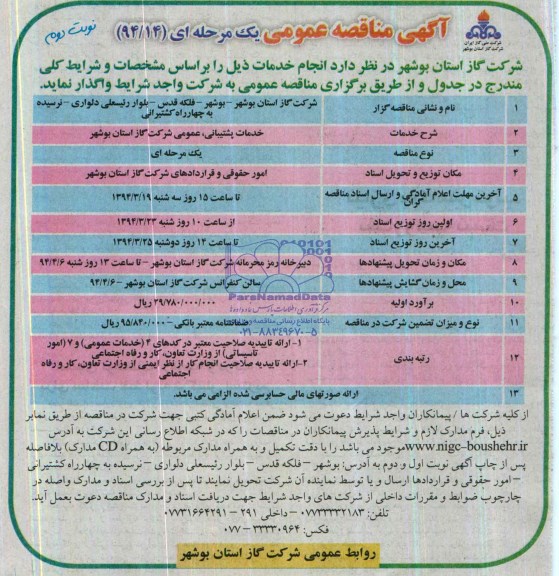 نوبت دوم
آگهی مناقصه عمومی یک مرحله ای (۹۴/۱۴)
شرکت ملی گاز ایران
شرکت گاز استان بوشهر
شرکت گاز استان بوشهر در نظر دارد انجام خدمات ذیل را براساس مشخصات و شرایط کلی
مندرج در جدول و از طریق برگزاری مناقصه عمومی به شرکت واجد شرایط واگذار نماید.
۱ نام و نشانی مناقصه گزار شرکت گاز استان بوشهر – بوشهر – فلکه قدس – بلوار رئیسعلی دلواری – نرسیده
به چهارراه کشتیرانی
۲ شرح خدمات خدمات پشتیبانی، عمومی شرکت گاز استان بوشهر
۳ نوع مناقصه یک مرحله ای
۴ مکان توزیع و تحویل اسناد امور حقوقی و قراردادهای شرکت گاز استان بوشهر
۵ آخرین مهلت اعلام آمادگی و ارسال اسناد مناقصه گران تا ساعت ۱۵ روز سه شنبه ۱۳۹۴/۳/۱۹
۶ اولین روز توزیع اسناد از ساعت ۱۰ روز شنبه ۱۳۹۴/۳/۲۳
۷ آخرین روز توزیع اسناد تا ساعت ۱۴ روز دوشنبه ۱۳۹۴/۳/۲۵
۸ مکان و زمان تحویل پیشنهادها دبیرخانه رمز محرمانه شرکت گاز استان بوشهر – تا ساعت ۱۳ روز شنبه ۹۴/۴/۶
۹ محل و زمان گشایش پیشنهادها سالن کنفرانس شرکت گاز استان بوشهر – ۹۴/۴/۶
۱۰ برآورد اولیه ۲۹/۷۸۰/۰۰۰/۰۰۰ ریال
۱۱ نوع و میزان تضمین شرکت در مناقصه ضمانتنامه معتبر بانکی – ۹۵/۸۴۰/۰۰۰ ریال
۱۲ رتبه بندی ۱- ارائه تاییدیه صلاحیت معتبر در کدهای ۴ (خدمات عمومی) و ۷ (امور
تاسیساتی) از وزارت تعاون، کار و رفاه اجتماعی
۲- ارائه تاییدیه صلاحیت انجام کار از نظر ایمنی از وزارت تعاون، کار و رفاه
اجتماعی
۱۳ ارائه صورتهای مالی حسابرسی شده الزامی می باشد.
ParsNamadData
پایگاه اطلاع رسانی مناقصه
۰۲۱-۸۸۳۴۹۶۷۰-۵
از کلیه شرکت ها / پیمانکاران واجد شرایط دعوت می شود ضمن اعلام آمادگی کتبی جهت شرکت در مناقصه از طریق نمابر
ذیل، فرم مدارک لازم و شرایط پذیرش پیمانکاران در مناقصات را که در شبکه اطلاع رسانی این شرکت به آدرس
www.nigc-boushehr.ir موجود می باشد را با دقت تکمیل و به همراه مدارک مربوطه (به همراه CD مدارک) بلافاصله
پس از چاپ آگهی نوبت اول و دوم به آدرس: بوشهر – فلکه قدس – بلوار رئیسعلی دلواری – نرسیده به چهارراه کشتیرانی
– امور حقوقی و قراردادها ارسال و یا توسط نماینده آن شرکت تحویل نمایند تا پس از بررسی اسناد و مدارک واصله در
چارچوب ضوابط و مقررات داخلی از شرکت های واجد شرایط جهت دریافت اسناد و مدارک مناقصه دعوت بعمل آید.
تلفن: ۰۷۷۳۳۳۳۲۱۸۳ – داخلی ۲۹۱ – ۰۷۷۳۱۶۶۴۲۹۱
فکس: ۳۳۳۳۰۹۶۴ – ۰۷۷
روابط عمومی شرکت گاز استان بوشهر